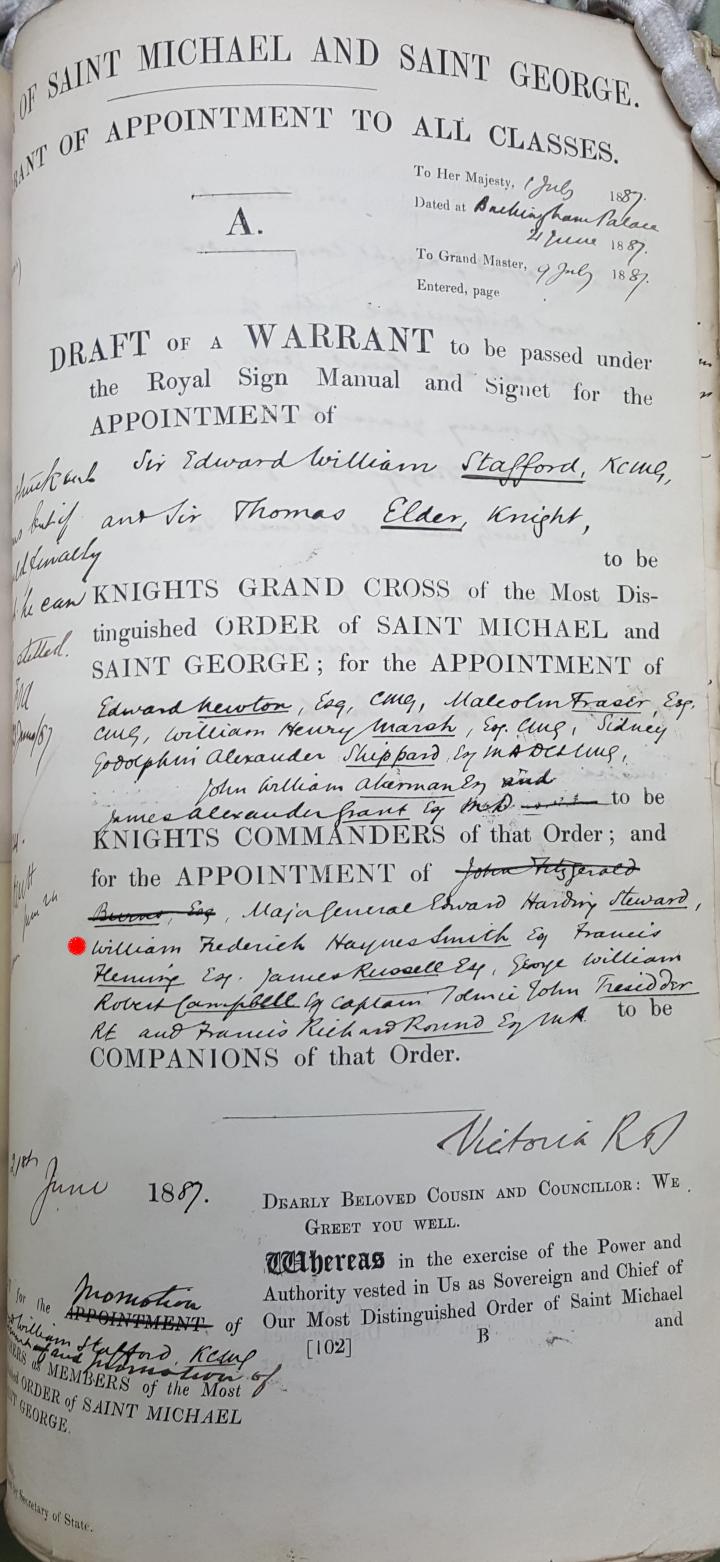 OF SAINT MICHAEL AND SAINT GEORGE.
RANT OF APPOINTMENT TO ALL CLASSES.
To Her Majesty, 1 July 1887.
A.
Dated at Buckingham Palace
21 June 1887.
To Grand Master, 9 July 1887.
Entered, page
DRAFT OF A WARRANT to be passed under
the Royal Sign Manual and Signet for the
APPOINTMENT of
struck out
Sir Edward William Stafford, KCMG,
but if
and Sir Thomas Elder, Knight,
finally
to be
he can
KNIGHTS GRAND CROSS of the Most Dis-
tinguished ORDER of SAINT MICHAEL and
SAINT GEORGE; for the APPOINTMENT of
Edward Newton, Esq, CMG, Malcolm Fraser, Esq.
CMG, William Henry Marsh, Esq. CMG, Sidney
Godolphin Alexander Shippard Esq MA DCL CMG,
John William Akerman Esq and
James Alexander Grant Esq M.D. to be
KNIGHTS COMMANDERS of that Order; and
for the APPOINTMENT of John Fitzgerald
Burns, Esq, Major General Edward Harding Steward,
William Frederick Haynes Smith Esq Francis
Fleming Esq. James Russell Esq, George William
Robert Campbell Esq Captain Tolmie John Tresidder
RE and Francis Richard Round Esq MA to be
COMPANIONS of that Order.
Victoria R I
21st June 1887.
DEARLY BELOVED COUSIN AND COUNCILLOR: WE
GREET YOU WELL.
Whereas in the exercise of the Power and
Authority vested in Us as Sovereign and Chief of
Our Most Distinguished Order of Saint Michael
and
[102] B
for the Promotion APPOINTMENT of
William Stafford, KCMG
and promotion of
MEMBERS of the Most
ORDER of SAINT MICHAEL
GEORGE.
Secretary of State.